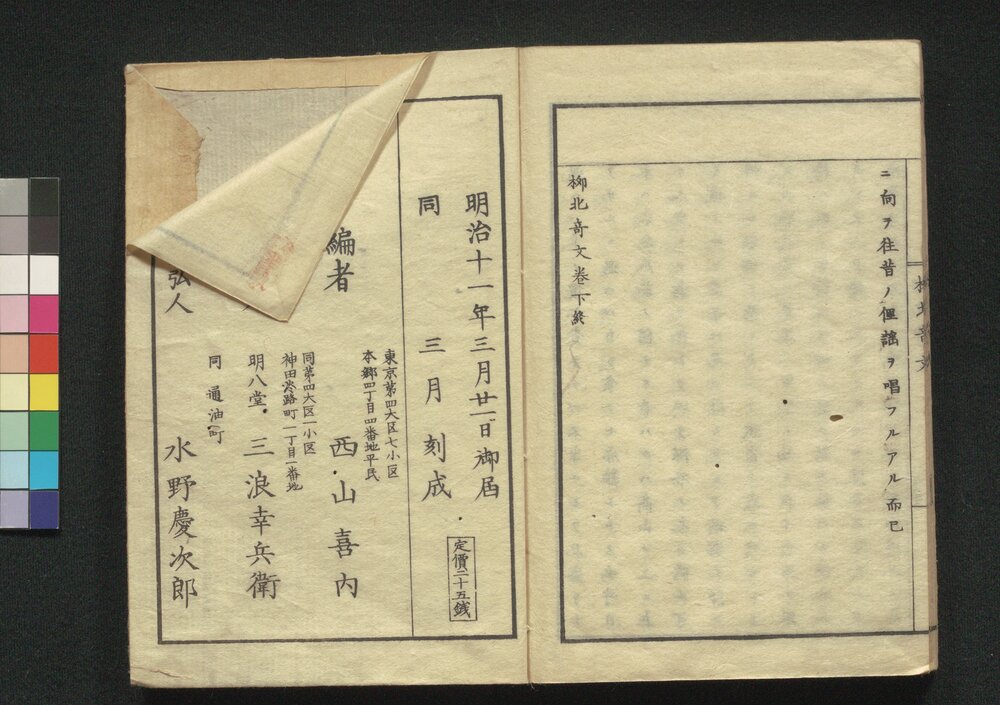 ニ向ヲ往昔ノ俚謡ヲ唱フルアル而已
柳北奇文卷下終
明治十一年三月廿一日御届
同 三月刻成
定價二十五銭
編者
東京第四大区七小区
本郷四丁目四番地平民
西山喜内
同第四大区一小区
神田淡路町一丁目一番地
明八堂 三浪幸兵衛
弘人
同 通油町
水野慶次郎